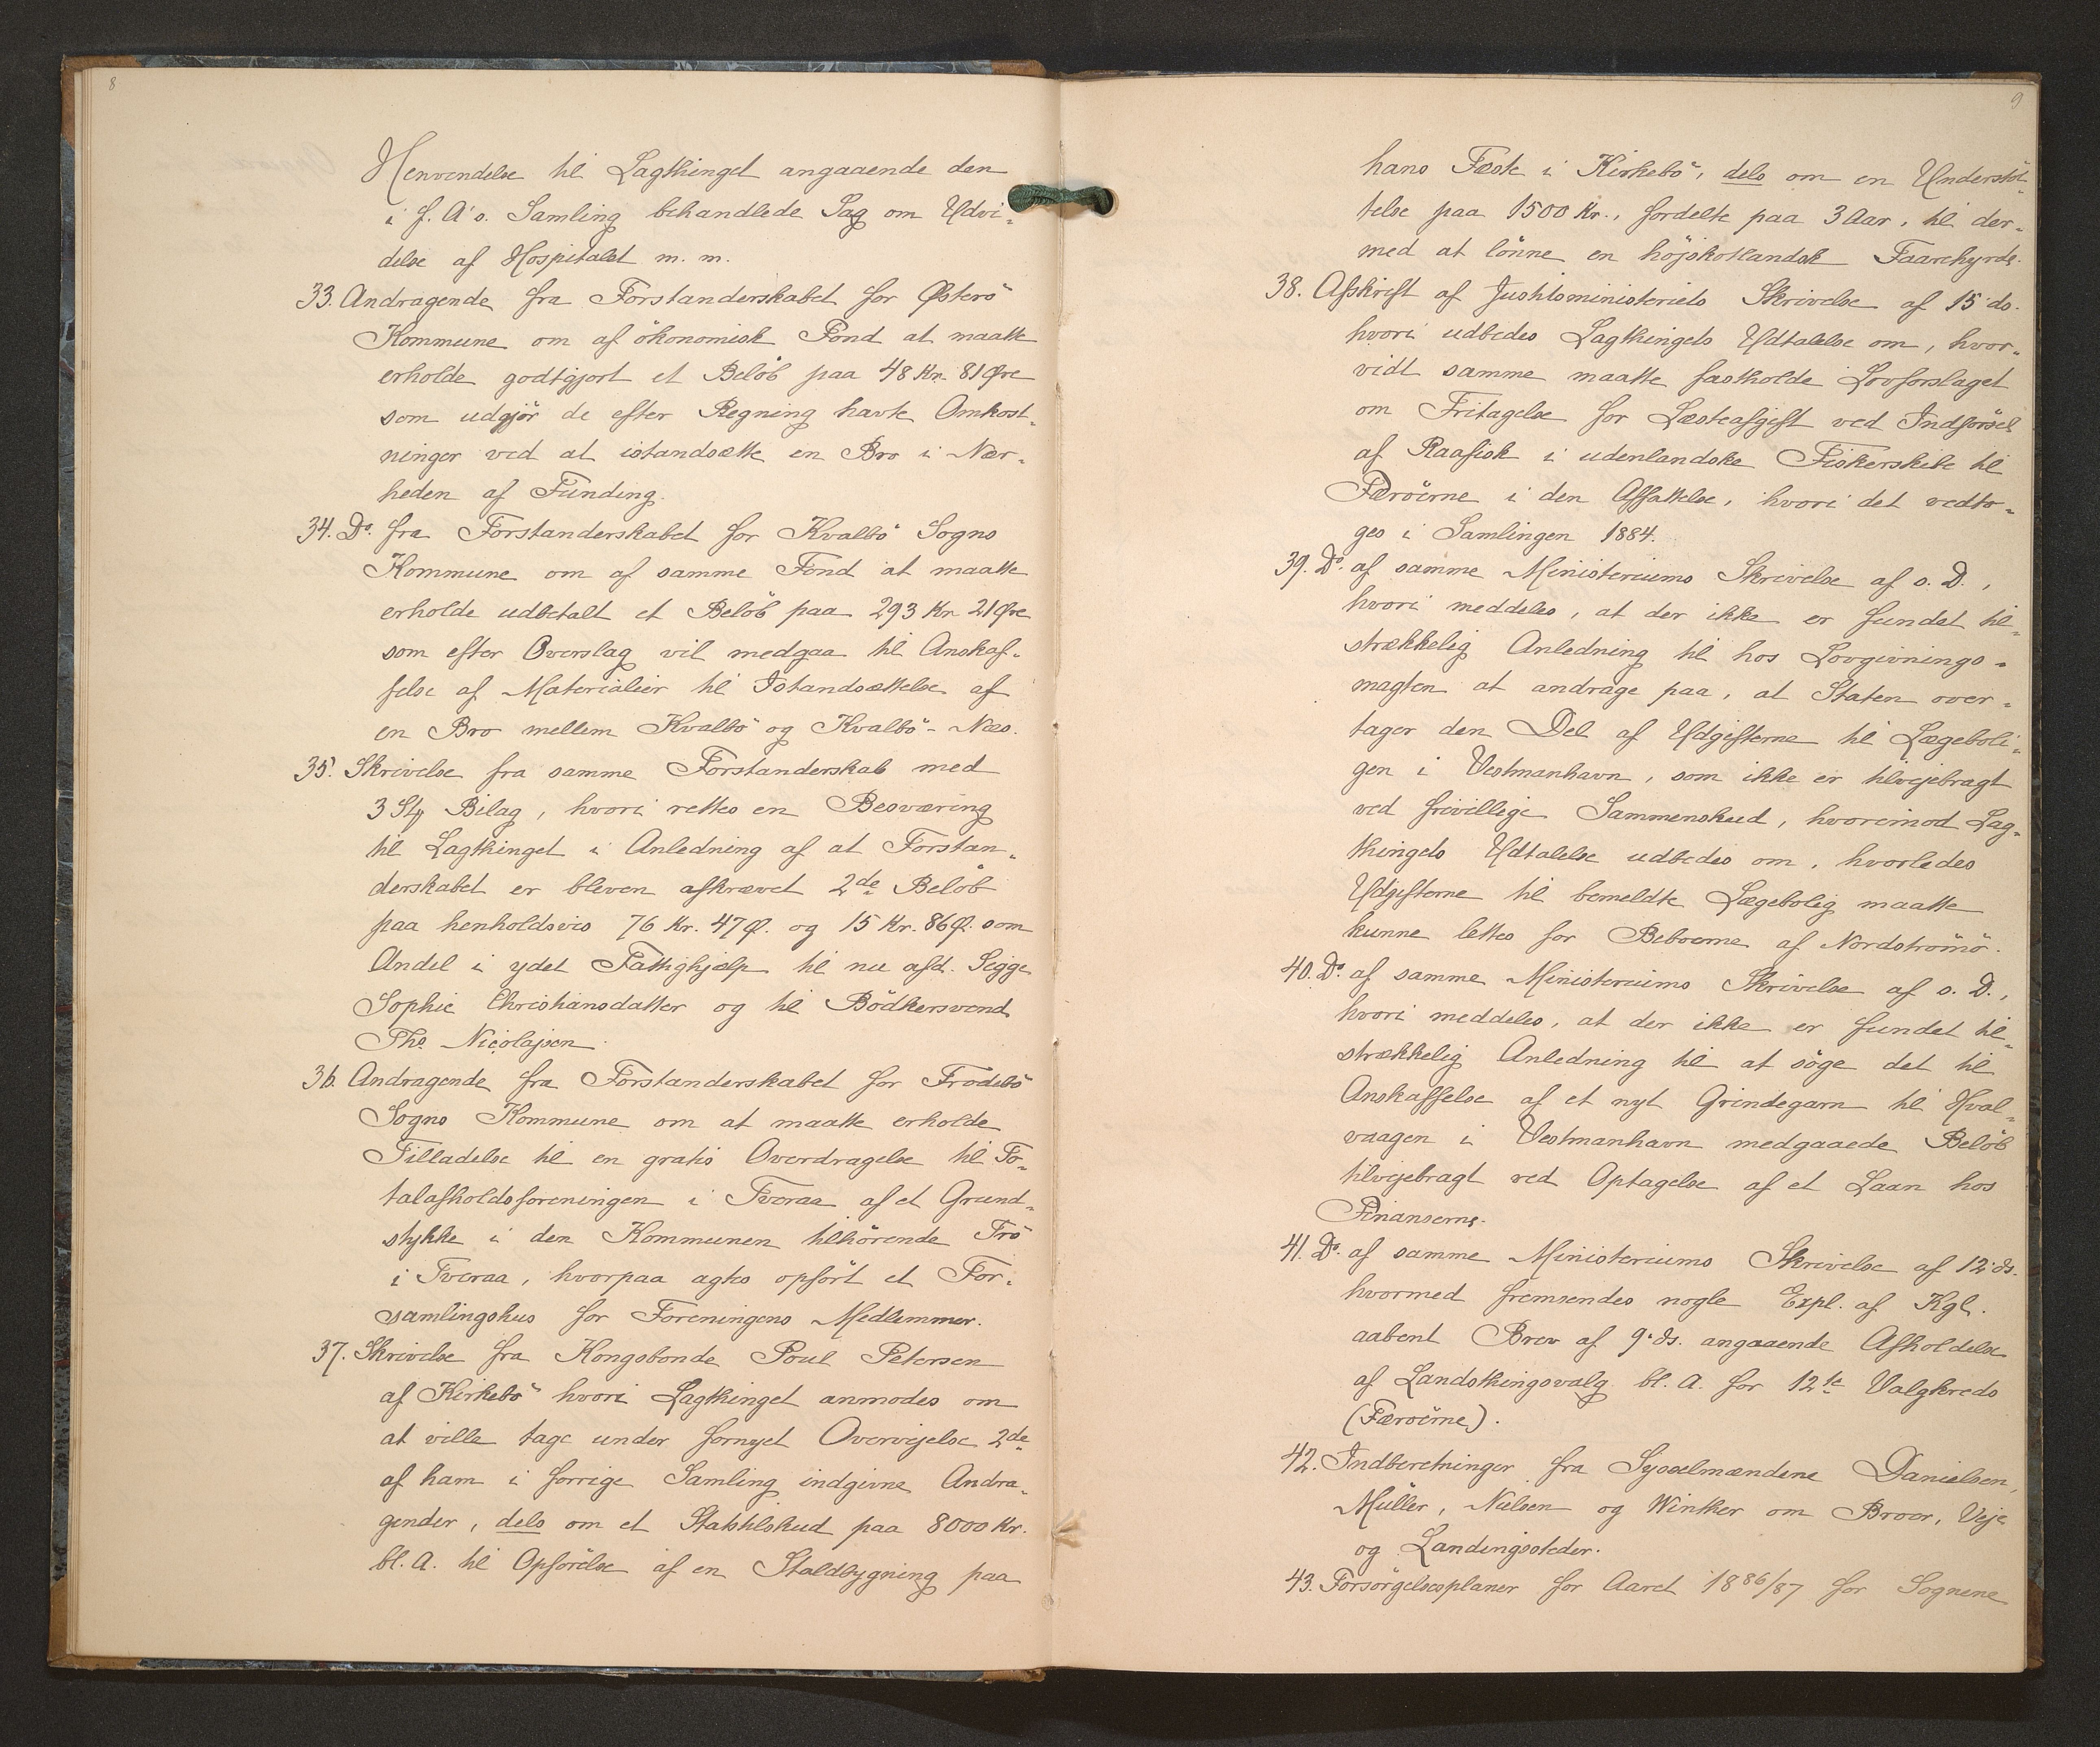 8
Henvendelse til Lagthinget angaaende den
i f. A's. Samling behandlede Sag om Udvi-
delse af Hospitalet m. m.
33. Andragende fra Forstanderskabet for Østerö
Kommune om af ökonomisk Fond at maatte
erholde godtgjort et Belöb paa 48 Kr. 81 Øre
som udgjör de efter Regning havte Omkost-
ninger ved at istandsætte en Bro i Nær-
heden af Funding.
34. Do. fra Forstanderskabet for Kvalbö Sogns
Kommune om af samme Fond at maatte
erholde udbetalt et Belöb paa 293 Kr 21 Øre
som efter Overslag vil medgaa til Anskaf-
felse af Materialier til Istandsættelse af
en Bro mellem Kvalbö og Kvalbö-Næs.
35. Skrivelse fra samme Forstanderskab med
3 Stk Bilag, hvori rettes en Besværing
til Lagthinget i Anledning af at Forstan-
derskabet er bleven afkrævet 2de Belöb
paa henholdsvis 76 Kr. 47 Ø. og 15 Kr. 86 Ø. som
Andel i ydet Fattighjælp til nu afd. Sigge
Sophie Christiansdatter og til Bödkersvend
Ths Nicolajsen.
36. Andragende fra Forstanderskabet for Frodebö
Sogns Kommune om at maatte erholde
Tilladelse til en gratis Overdragelse til To-
talafholdsforeningen i Tveraa af et Grund-
stykke i den Kommunen tilhörende Trö
i Tveraa, hvorpaa agtes opfört et For-
samlingshus for Foreningens Medlemmer.
37. Skrivelse fra Kongsbonde Poul Petersen
af Kirkebö hvori Lagthinget anmodes om
at ville tage under fornyet Overvejelse 2de
af ham i forrige Samling indgivne Andra-
gender, dels om et Statstilskud paa 8000 Kr.
bl. A. til Opförelse af en Staldbygning paa
9
hans Fæste i Kirkebö, dels om en Understöt-
telse paa 1500 Kr., fordelte paa 3 Aar, til der-
med at lönne en höjskotlandsk Faarehyrde.
38. Afskrift af Justitsministeriets Skrivelse af 15' ds.
hvori udbedes Lagthingets Udtalelse om, hvor-
vidt samme maatte fastholde Lovforslaget
om Fritagelse for Læsteafgift ved Indförsel
af Raafisk i udenlandske Fiskerskibe til
Færöerne i den Affattelse, hvori det vedto-
ges i Samlingen 1884.
39. Do. af samme Ministeriums Skrivelse af s. D.,
hvori meddeles, at der ikke er fundet til-
strækkelig Anledning til hos Lovgivnings-
magten at andrage paa, at Staten over-
tager den Del af Udgifterne til Lægeboli-
gen i Vestmanhavn, som ikke er tilvejebragt
ved frivillige Sammenskud, hvorimod Lag-
thingets Udtalelse udbedes om, hvorledes
Udgifterne til bemeldte Lægebolig maatte
kunne lettes for Beboerne af Nordströmö.
40. Do. af samme Ministeriums Skrivelse af s. D.,
hvori meddeles, at der ikke er fundet til-
strækkelig Anledning til at söge det til
Anskaffelse af et nyt Grindegarn til Hval-
vaagen i Vestmanhavn medgaaede Belöb
tilvejebragt ved Optagelse af et Laan hos
Finanserne.
41. Do. af samme Ministeriums Skrivelse af 12' ds.
hvormed fremsendes nogle Expl. af Kgl.
aabent Brev af 9' ds. angaaende Afholdelse
af Landsthingsvalg bl. A. for 12te Valgkreds
(Færöerne).
42. Indberetninger fra Sysselmændene Danielsen,
Müller, Nielsen og Winther om Broer, Veje
og Landingssteder.
43. Forsörgelsesplaner for Aaret 1886/87 for Sognene